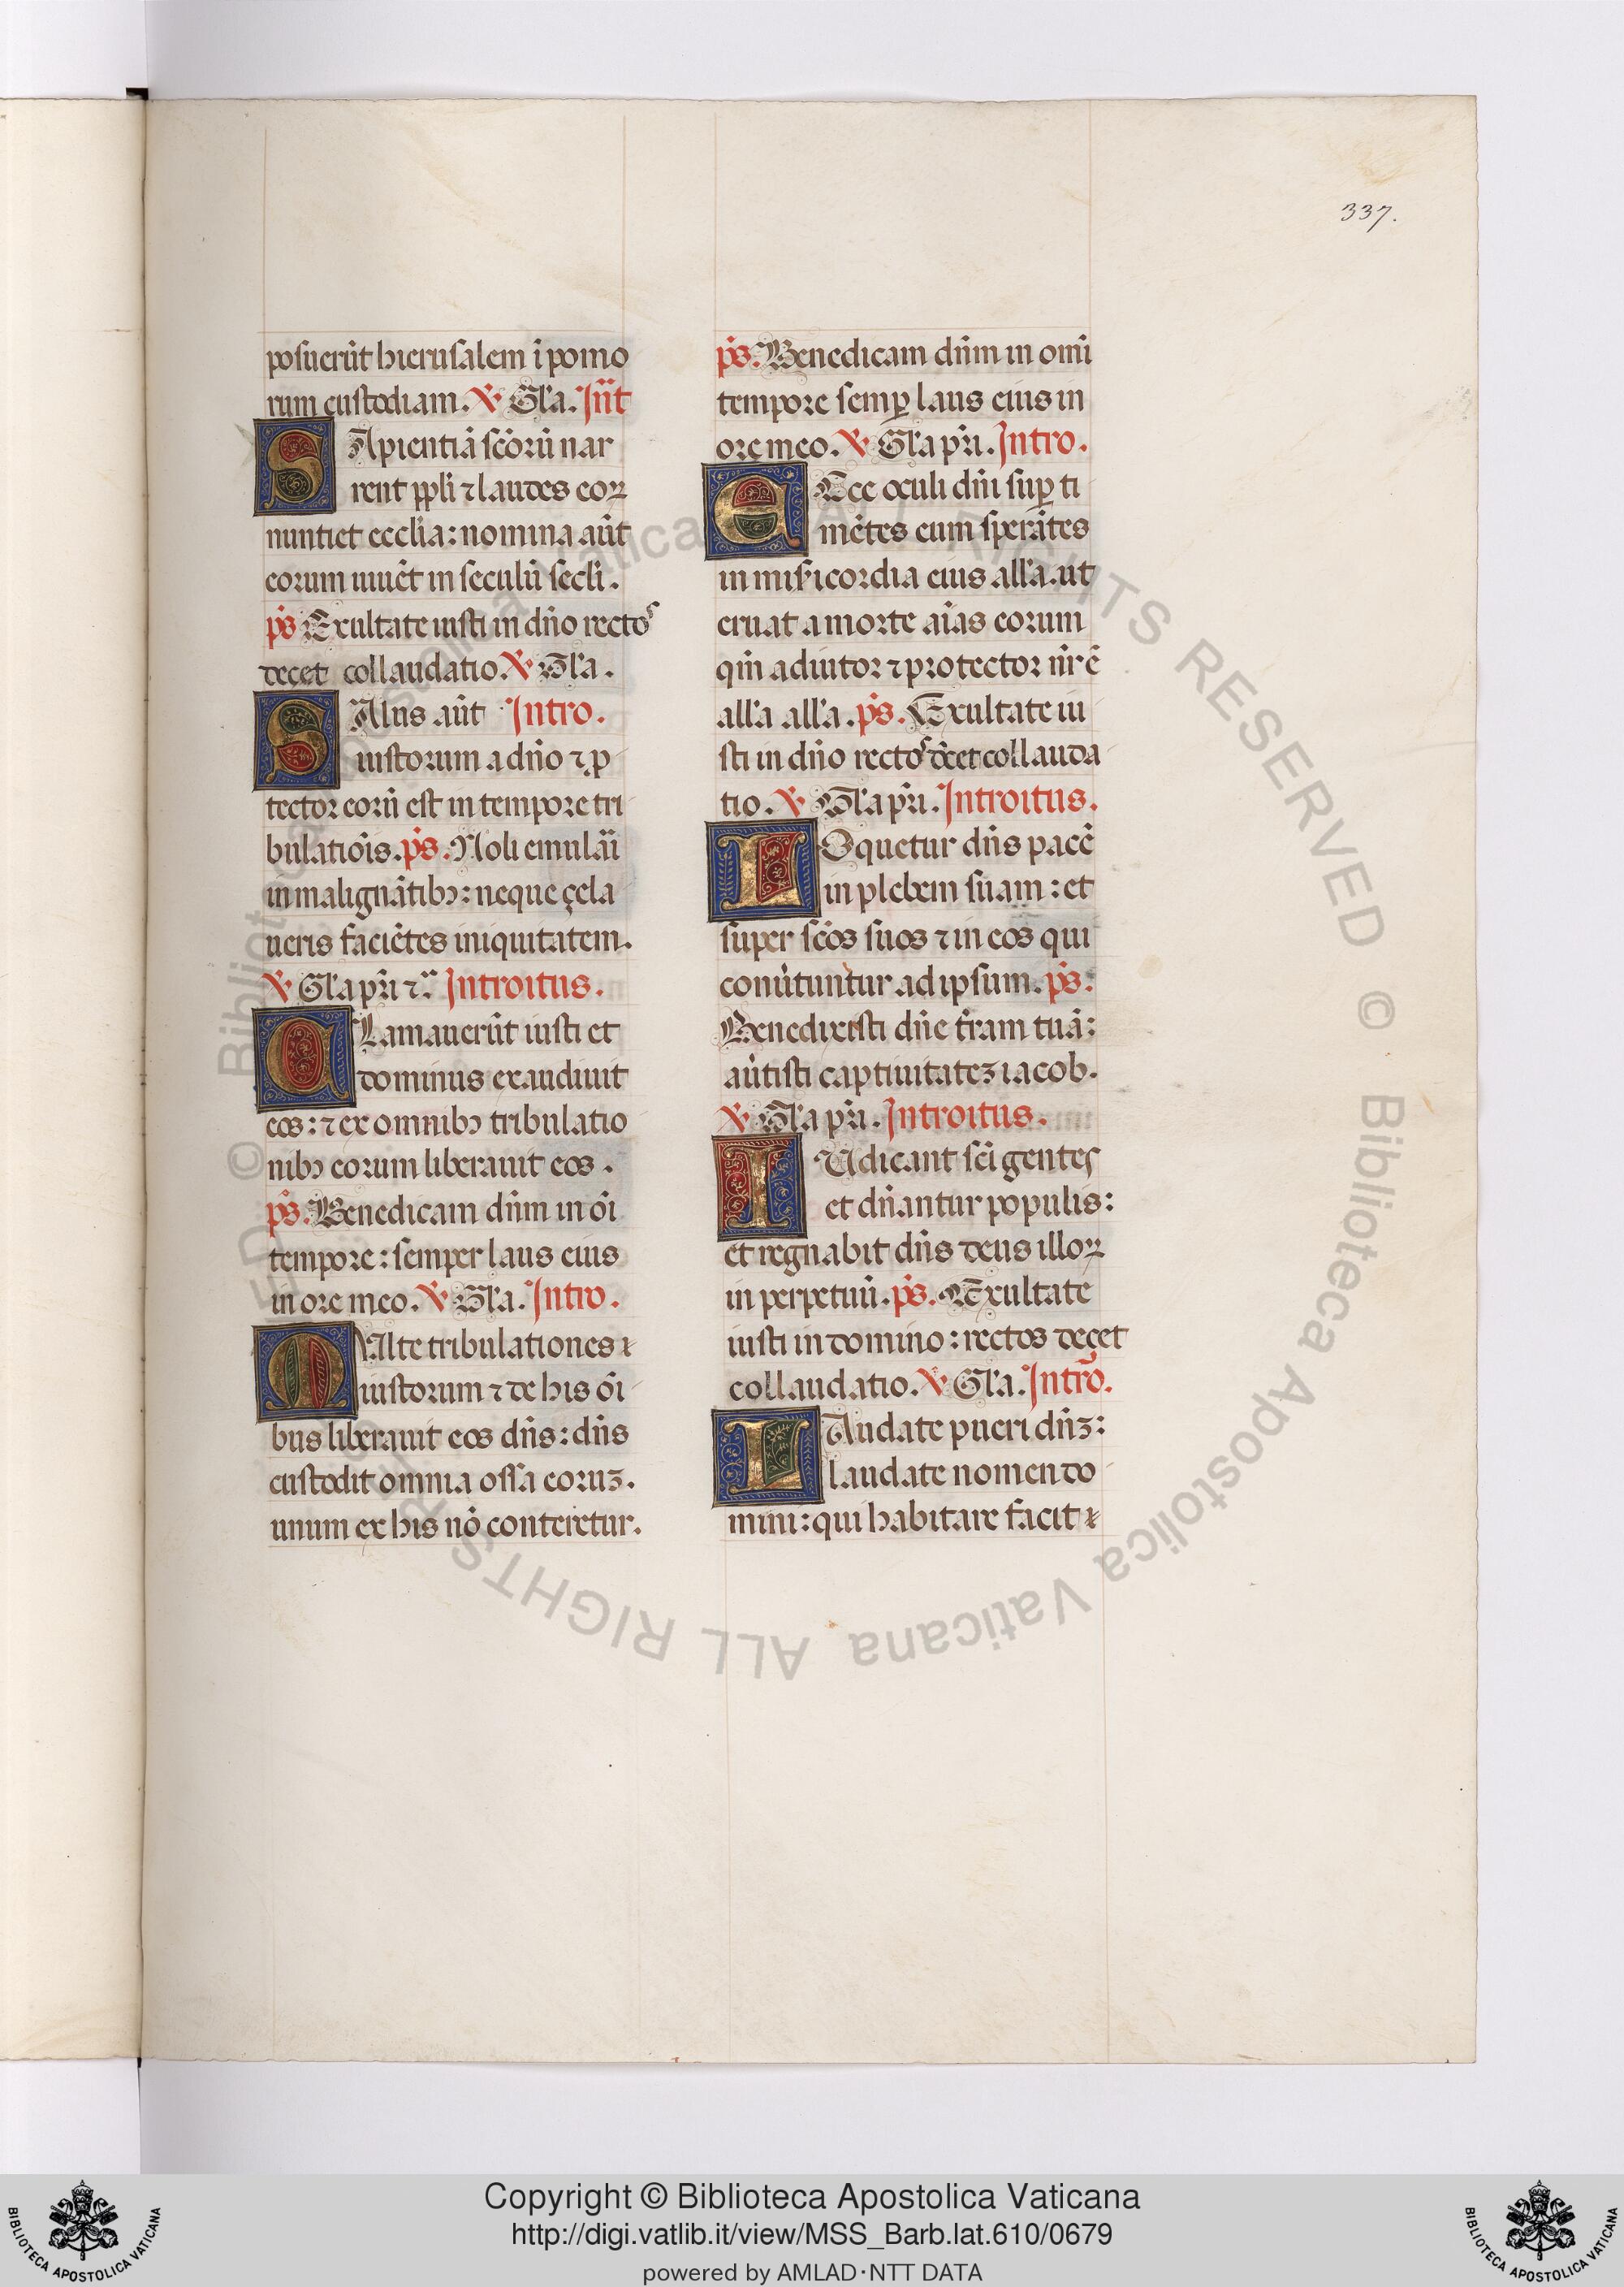 337.
posuerūt hierusalem ī pomo
rum custodiam. ℣ Gl'a. Int̄
SApientiā sc̄orū nar
rent pp̄li ⁊ laudes eoꝝ
nuntiet eccl'ia: nomina aūt
eorum uiuēt in seculū secl'i.
p̄s Exultate iusti in dn̄o rectos
decet collaudatio. ℣ Gl'a.
SAlus aūt Intro.
iustorum a dn̄o ⁊ ꝓ
tector eorū est in tempore tri
bulatiōis. p̄s. Noli emulāī
in malignātibꝰ: neque çela
ueris faciētes iniquitatem.
℣ Gl'a pr̄i ⁊c̄ Introitus.
CLamauerūt iusti et
dominus exaudiuit
eos: ⁊ ex omnibꝰ tribulatio
nibꝰ eorum liberauit eos.
p̄s. Benedicam dn̄m in oī
tempore: semper laus eius
in ore meo. ℣ Gl'a. Intro.
MVlte tribulationes
iustorum ⁊ de his oī
bus liberauit eos dn̄s: dn̄s
custodit omnia ossa eoruꝫ.
unum ex his nō conteretur.
p̄s. Benedicam dn̄m in omī
tempore semꝑ laus eius in
ore meo. ℣ Gl'a pr̄i. Intro.
ECce oculi dn̄i suꝑ ti
mētes eum sperātes
in mis'icordia eius all'a. ut
eruat a morte aīas eorum
qm̄ adiutor ⁊ protector nr̄ ē
all'a all'a. p̄s. Exultate iu
sti in dn̄o rectos decet collauda
tio. ℣ Gl'a pr̄i. Introitus.
LOquetur dn̄s pacē
in plebem suam: et
super sc̄os suos ⁊ in eos qui
conūtuntur ad ipsum. p̄s:
Benedixisti dn̄e t'ram tuā:
aūtisti captiuitateꝫ iacob.
℣ Gl'a pr̄i. Introitus.
IUdicant sc̄i gentes
et dn̄antur populis:
et regnabit dn̄s deus illoꝝ
in perpetuū. p̄s. Exultate
iusti in domino: rectos decet
collaudatio. ℣ Gl'a. Intrō.
LAudate pueri dn̄ꝫ:
laudate nomen do
mini: qui habitare facit
Copyright © Biblioteca Apostolica Vaticana
http://digi.vatlib.it/view/MSS_Barb.lat.610/0679
powered by AMLAD·NTT DATA
BIBLIOTECA APOSTOLICA VATICANA
BIBLIOTECA APOSTOLICA VATICANA
© Biblioteca Apostolica Vaticana ALL RIGHTS RESERVED © Biblioteca Apostolica Vaticana ALL RIGHTS RESERVED